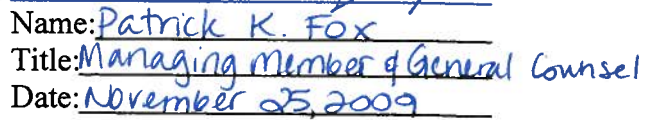 Name: Patrick K. Fox
Title: Managing Member & General Counsel
Date: November 25, 2009